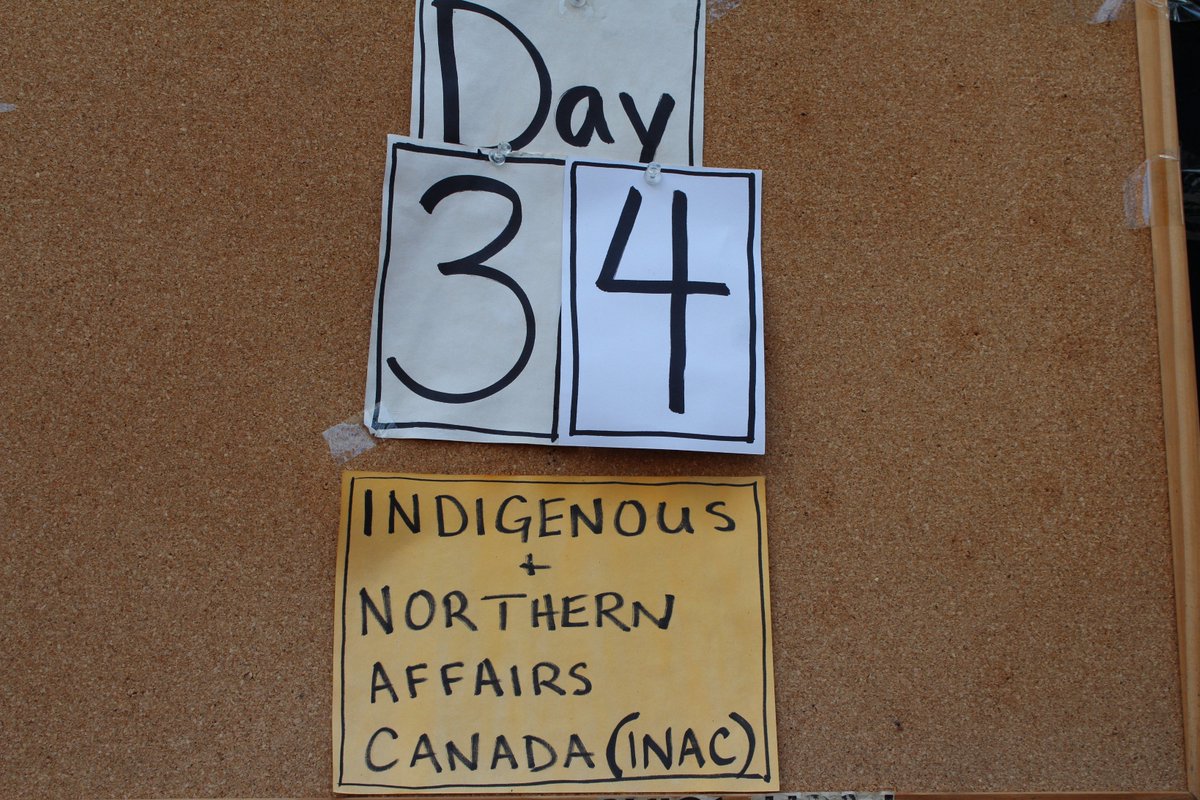 Day
34
INDIGENOUS
+
NORTHERN
AFFAIRS
CANADA (INAC)